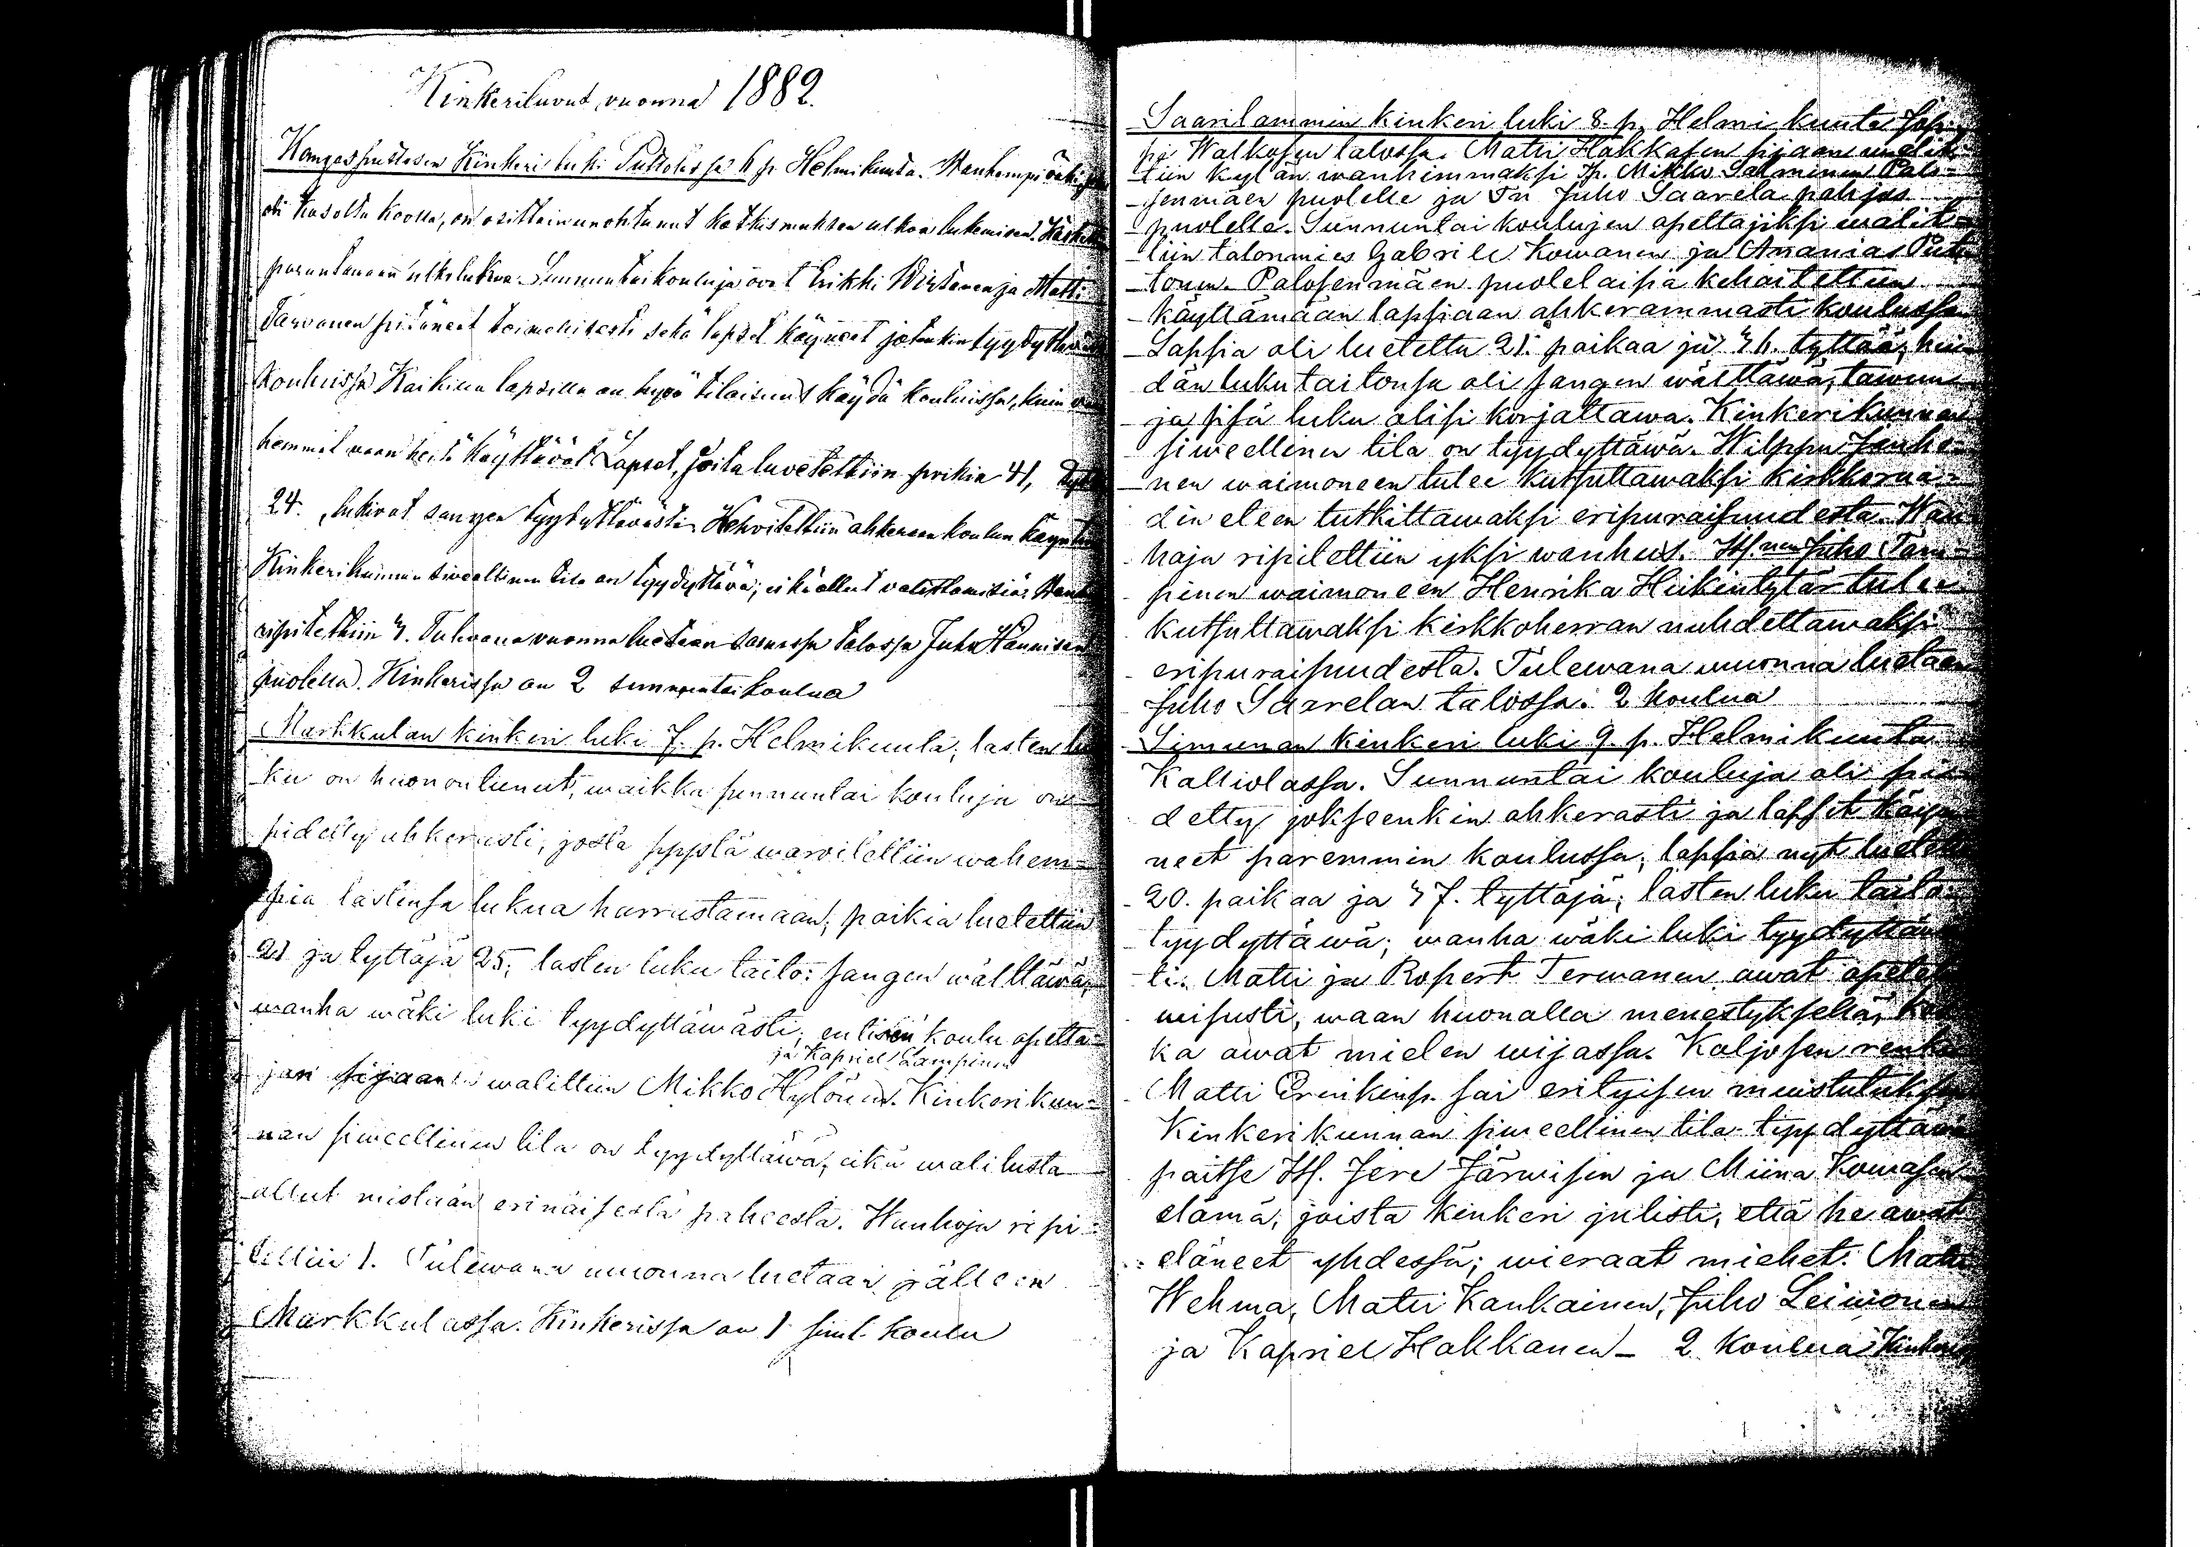 Kinkeriluvut vuonna 1882.
Kangaspustasen Kinkeri luki Puttolassa 6 p. Helmikuuta. Wanhempi väki
oli kasolta koolla, on osittain unohtanut katkismuksen ulkoa lukemisen.
parantamaan ulkolukua. Sunnuntaikouluja ovat Erikki Wirtanen ja Matti
Tarvanen pitäneet toimellisesti sekä lapset käyneet jotenkin tyydyttäväst
kouluissa. Kaikilla lapsilla on hyvä tilaisuus käydä kouluissa, kuin van
hemmat vaan heitä käyttävät. Lapset, joita luetettiin poikia 41,
24. lukivat sangen tyydyttävästi. Kehoitettiin ahkeraan koulun käyntiin
Kinkerikunnan siveellinen tila on tyydyttävä; eikä ollut valittamisia.
ripitettiin 4. Tulevana vuonna luetaan samassa talossa Juho Hännisen
puolella. Kinkerissa on 2 sunnuntaikoulua
Markkulan kinkeri luki 7. p. Helmikuuta; lasten lu
ku on huonontunut, waikka sunnuntai kouluja on
pidetty ahkerasti, josta syystä waroitettiin wahem=
pia lastensa lukua harrastamaan; poikia luetettiin
21 ja tyttäjä 25; lasten luku taito: sangen wälttäwä;
wanha wäki luki tyydyttäwästi; entisen koulu opetta=
ja Kapriel Lampinen
jan sijaan walittiin Mikko Hylönen. Kinkerikun=
nan siweellinen tila on tyydyttäwä, eikä walitusta
ollut mistään erinäisestä paheesta. Wanhoja ripi=
tettiin 1. Tulewana wuonna luetaan jälleen
Markkulassa. Kinkerissa on 1 sunt. koulu
Saarilammin kinkeri luki 8. p. Helmikuuta
Walkosen talossa. Matti Hakkasen sijaan walit=
tiin kylän wanhimmaksi Tp. Mikko Salminen Palo=
senmäen puolelle ja Tn Juho Saarela pohjos
puolelle. Sunnuntai koulujen opettajiksi walit=
tiin talonmies Gabriel Kowanen ja Ananias
Palosenmäen puolelaisia kehoitettiin
käyttämään lapsiaan ahkerammasti koulussa
Lapsia oli luetettu 21. poikaa ja 46. tyttää; hei
dän lukutaitonsa oli sangen wälttäwä; tawun
ja sisä luku olisi korjattawa. Kinkerikunnan
siweellinen tila on tyydyttäwä. Wilppu
nen waimoneen tulee kutsuttawaksi kirkkoraa=
din eteen tutkittawaksi eripuraisuudesta. Wan
hoja ripitettiin yksi wanhus. Itsnen Juho Tam=
pinen waimoneen Henrika Heikentytär tulee
kutsuttawaksi kirkkoherran nuhdettawaksi
eripuraisuudesta. Tulewana wuonna luetaan
Juho Saarelan talossa. 2 koulua
Simunan kinkeri luki 9. p. Helmikuuta
Kalliolassa. Sunnuntai kouluja oli pi=
detty jokseenkin ahkerasti ja lapset käy
neet paremmin koulussa; lapsia nyt luetet
20. poikaa ja 47. tyttäjä; lasten luku taito
tyydyttäwä; wanha wäki luki tyydyttäwäs
ti. Matti ja Ropert Terwanen owat opetet
uisusti, waan huonolla menestyksellä, kos
ka owat mielen wijassa. Koljosen renki
Matti Erinkinp. sai erityisen muistutuksen
Kinkerikunnan siweellinen tila tyydyttäwä
paitse Itl. Jere Järwisen ja Miina Kowasen
elämä, joista kinkeri julisti, että he owat
eläneet yhdessä; wieraat miehet: Matti
Wehma, Matti Kankainen, Juho Leiwonen
ja Kapriel Hakkanen – 2 koulua Kinkeris